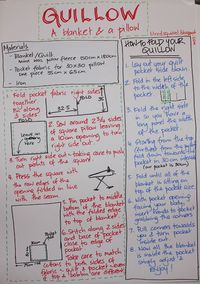 QUILLOW
A blanket & a pillow
Materials
- Blanket/Quilt
mine was polar fleece 150cm x
- Pocket fabric for 50x50 pillow
one piece 55cm x 65cm
- Iron
1. Fold pocket fabric right sides
together
stitch along
3 sides
FOLD
32.5
2. Sew around 2 3/4 sides
of square pillow leaving
a 10cm opening to turn
right side out.
Leave an
opening
here
3. Turn right side out + taking care to push
out the corners of the square
4. Press the square with
the raw edges of the
opening folded in line
with the seam.
5. Pin pocket to middle
bottom of the blanket
with the folded edge
to top of blanket
6. Stitch along 2 sides
and base of pocket
close to edge of
pocket
Take care to match
cottons to both sides of
fabric
HOW TO FOLD YOUR
QUILLOW
1. Lay out your quilt
pocket side down
2. Fold in the left side
to the width of the
pocket
3. Fold the right side
in so you have a
long piece the width
of the pocket
4. Starting from the top
pocket in 30 cm
5. Fold until all of the
blanket is sitting on
top of the pocket side
6. With pocket opening
facing your body
push hands in pocket
grabbing the corners
7. Pull corners towards
you & turn pocket
inside out
8. When all the blanket
is inside the pocket
simply adjust &
Enjoy!